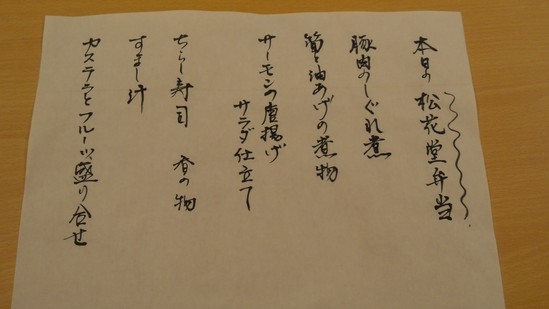 本日の松花堂弁当
豚肉のしぐれ煮
筍と油あげの煮物
サーモンの唐揚げ
サラダ仕立て
ちらし寿司 香の物
すまし汁
カステラとフルーツ盛り合せ